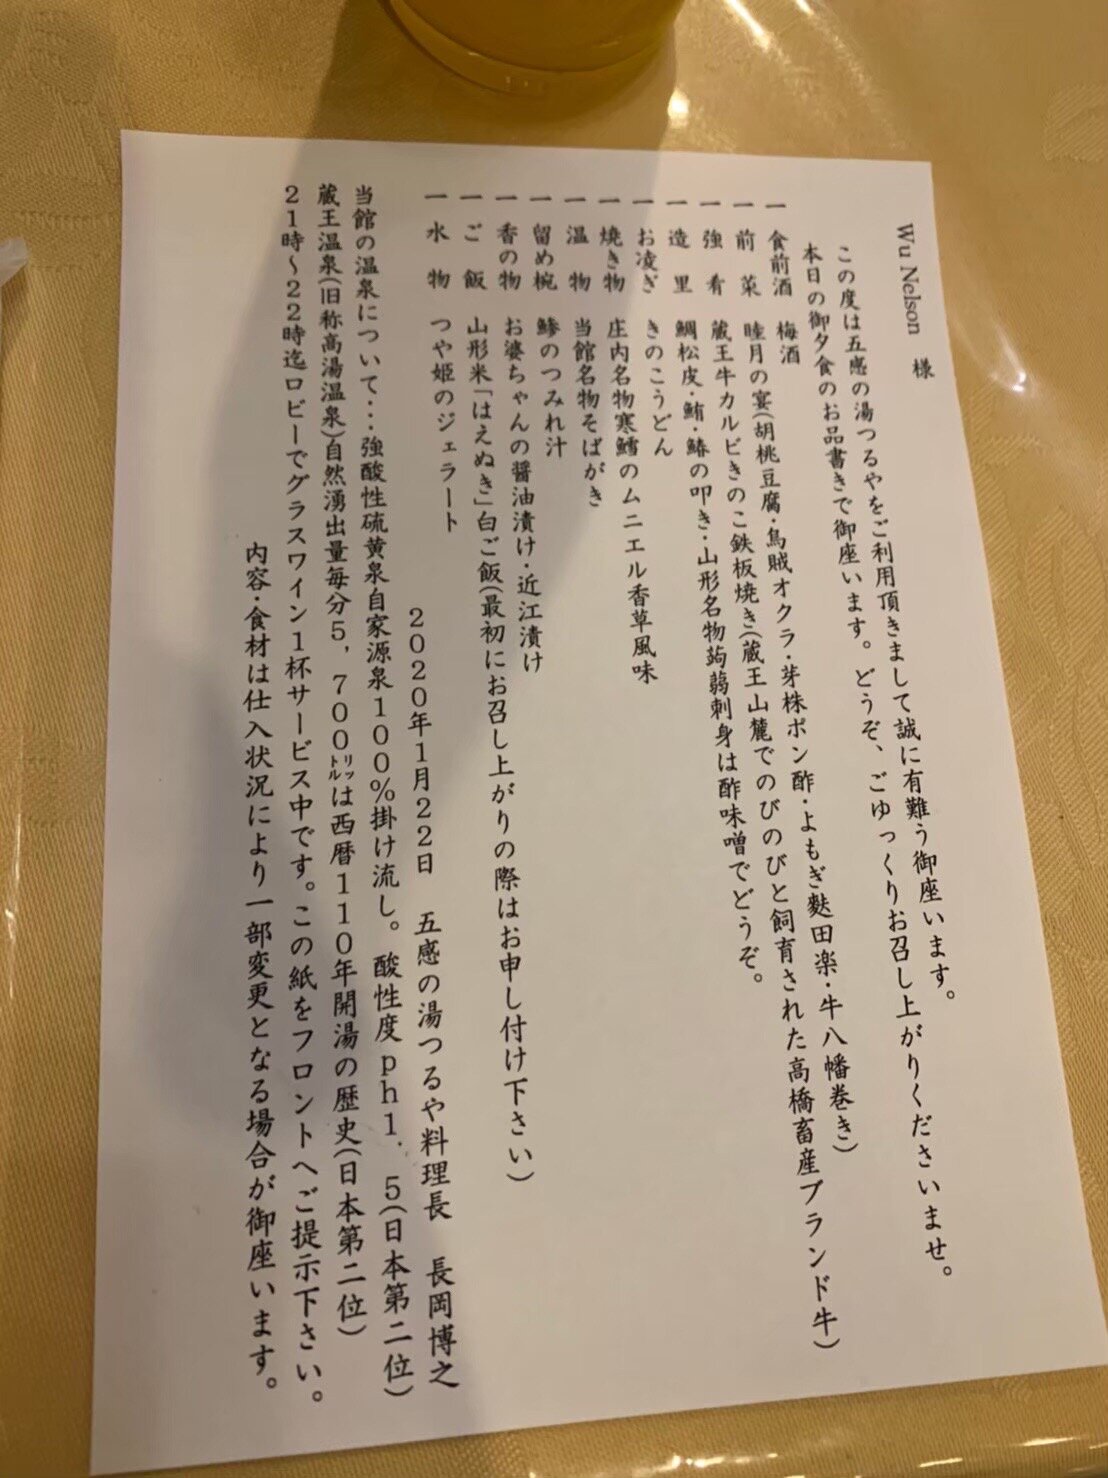 Wu Nelson 様
この度は五感の湯つるやをご利用頂きまして誠に有難う御座います。
本日の御夕食のお品書きで御座います。どうぞ、ごゆっくりお召し上がりくださいませ。
一 食前酒 梅酒
一 前菜 睦月の宴(胡桃豆腐・烏賊オクラ・芽株ポン酢・よもぎ麩田楽・牛八幡巻き)
一 強肴 蔵王牛カルビきのこ鉄板焼き(蔵王山麓でのびのびと飼育された高橋畜産ブランド牛)
一 造里 鯛松皮・鮪・鰆の叩き・山形名物蒟蒻刺身は酢味噌でどうぞ。
一 お凌ぎ きのこうどん
一 焼き物 庄内名物寒鱈のムニエル香草風味
一 温物 当館名物そばがき
一 留め椀 鯵のつみれ汁
一 香の物 お婆ちゃんの醤油漬け・近江漬け
一 ご飯 山形米「はえぬき」白ご飯(最初にお召し上がりの際はお申し付け下さい)
一 水物 つや姫のジェラート
2020年1月22日 五感の湯つるや料理長 長岡博之
当館の温泉について・・・強酸性硫黄泉自家源泉100%掛け流し。酸性度ph1.5(日本第二位)
蔵王温泉(旧称高湯温泉)自然湧出量毎分5,700㍑は西暦110年開湯の歴史(日本第二位)
21時～22時迄ロビーでグラスワイン1杯サービス中です。この紙をフロントへご提示下さい。
内容・食材は仕入状況により一部変更となる場合が御座います。